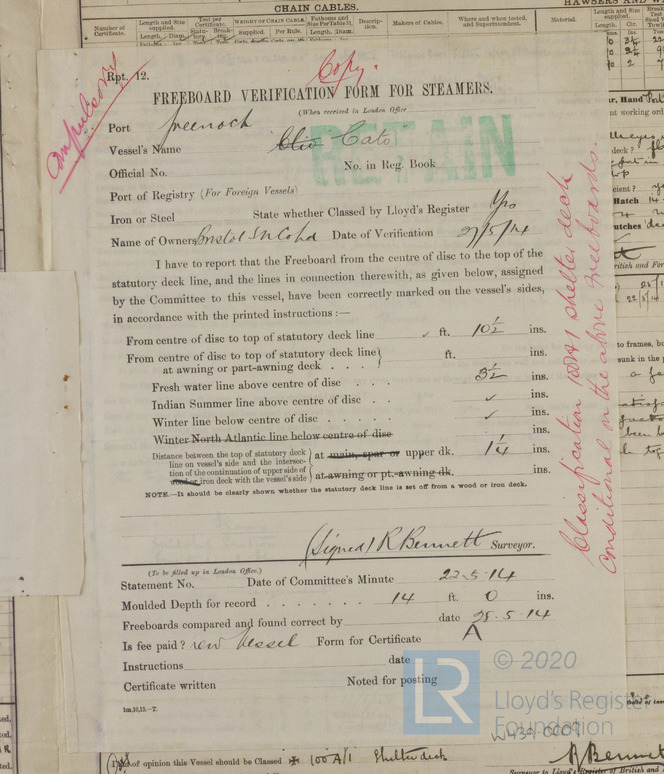 CHAIN CABLES.
HAWSERS AND
Number of Certificate.
Length and Size supplied.
Test per Certificate.
WEIGHT OF CHAIN CABLE.
Fathoms and Size Per Table 31.
Description.
Makers of Cables.
Where and when tested, and Superintendent.
Material.
Length, Diam.
Supplied.
Per Rule.
Length, Diam.
Length, Cir.
Compulsory
Rpt. 12.
Copy.
FREEBOARD VERIFICATION FORM FOR STEAMERS.
(When received in London Office
RETAIN
Port Greenock
Vessel's Name Clio Cato
Official No. No. in Reg. Book
Port of Registry (For Foreign Vessels)
Iron or Steel State whether Classed by Lloyd's Register Yes
Name of Owners Bristol S N Co Ld Date of Verification 27/5/14
I have to report that the Freeboard from the centre of disc to the top of the
statutory deck line, and the lines in connection therewith, as given below, assigned
by the Committee to this vessel, have been correctly marked on the vessel's sides,
in accordance with the printed instructions :—
From centre of disc to top of statutory deck line ✓ ft. 10½ ins.
From centre of disc to top of statutory deck line
at awning or part-awning deck . . . ft. ins.
Fresh water line above centre of disc . 3½ ins.
Indian Summer line above centre of disc . . ✓ ins.
Winter line below centre of disc . . . . ✓ ins.
Winter North Atlantic line below centre of disc ins.
Distance between the top of statutory deck
line on vessel's side and the intersec-
tion of the continuation of upper side of
wood or iron deck with the vessel's side
at main, spar or upper dk. 1¼ ins.
at awning or pt.-awning dk. ins.
NOTE.—It should be clearly shown whether the statutory deck line is set off from a wood or iron deck.
(Signed) R Bennett Surveyor.
(To be filled up in London Office.)
Statement No. Date of Committee's Minute 22.5.14
Moulded Depth for record . . . . . . . 14 ft. 0 ins.
Freeboards compared and found correct by date 28.5.14
Is fee paid? new vessel Form for Certificate A
Instructions date
Certificate written Noted for posting
1m,10,13.—T.
Classification 100A1 shelter deck
conditional on the above freeboards.
LR
© 2020
Lloyd's Register
Foundation
W439-0009
of opinion this Vessel should be Classed ✠ 100 A1 Shelter deck
R Bennett
Surveyor to Lloyd's Register of British and